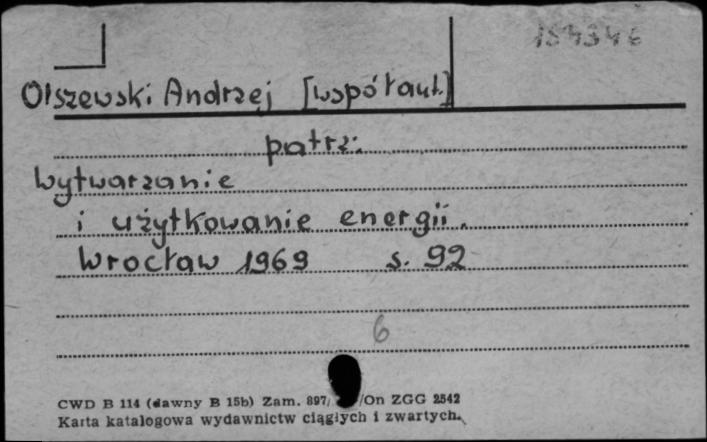 154346
Olszewski Andrzej [współaut.]
patrz:
Wytwarzanie
i użytkowanie energii.
Wrocław 1969 s. 92
6
CWD B 114 (dawny B 15b) Zam. 897/ /On ZGG 2542
Karta katalogowa wydawnictw ciągłych i zwartych.